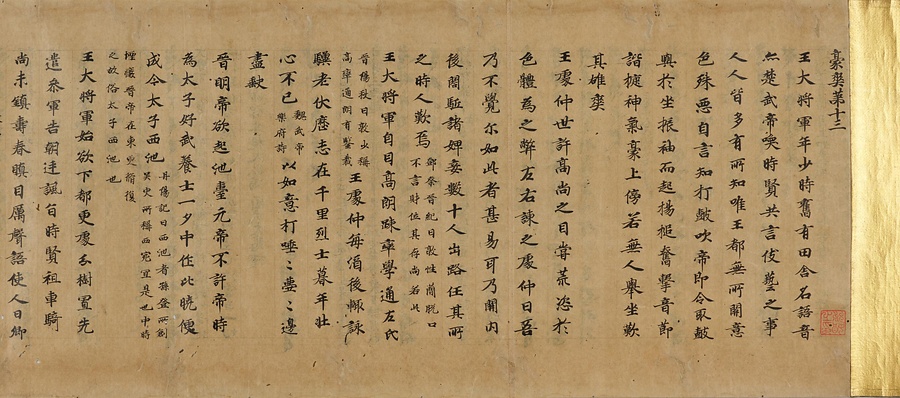 豪爽第十三
王大將軍年少時舊有田舍名語音
亦楚武帝喚時賢共言伎藝之事
人人皆多有所知唯王都無所關意
色殊惡自言知打鼓吹帝即令取鼓
與於坐振袖而起揚槌奮擊音節
諧捷神氣豪上傍若無人舉坐歎
其雄爽
王處仲世許高尚之目甞荒恣於
色體為之弊左右諫之處仲曰吾
乃不覺尔如此者甚易耳乃開內
後閤駈諸婢妾數十人出路任其所
之時人歎焉
鄧粲晉紀曰敦性蕳脫口
不言財位其存尚若此
王大將軍自目高朗疎率學通左氏
晉陽秋曰敦少稱
高率通朗有鑒裁
王處仲每酒後輙詠
驥老伏櫪志在千里烈士暮年壯
心不已
魏武帝
樂府詩
以如意打唾〻壺〻邊
盡缺
晉明帝欲起池臺元帝不許帝時
為太子好武養士一夕中作比曉便
成今太子西池
丹陽記曰西池者孫登所創
吳史所稱西苑宜是也中時
堙廢晉帝在東更脩復
之故俗太子西池也
王大將軍始欲下都更處分樹置先
遣參軍告朝廷諷旨時賢祖車騎
尚未鎮壽春瞋目厲聲語使人曰卿